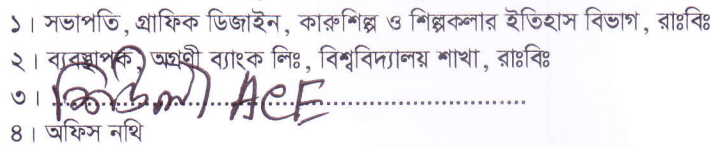 ১। সভাপতি, গ্রাফিক ডিজাইন, কারুশিল্প ও শিল্পকলার ইতিহাস বিভাগ, রাঃবিঃ
২। ব্যবস্থাপক, অগ্রণী ব্যাংক লিঃ, বিশ্ববিদ্যালয় শাখা, রাঃবিঃ
৩। ACE
৪। অফিস নথি